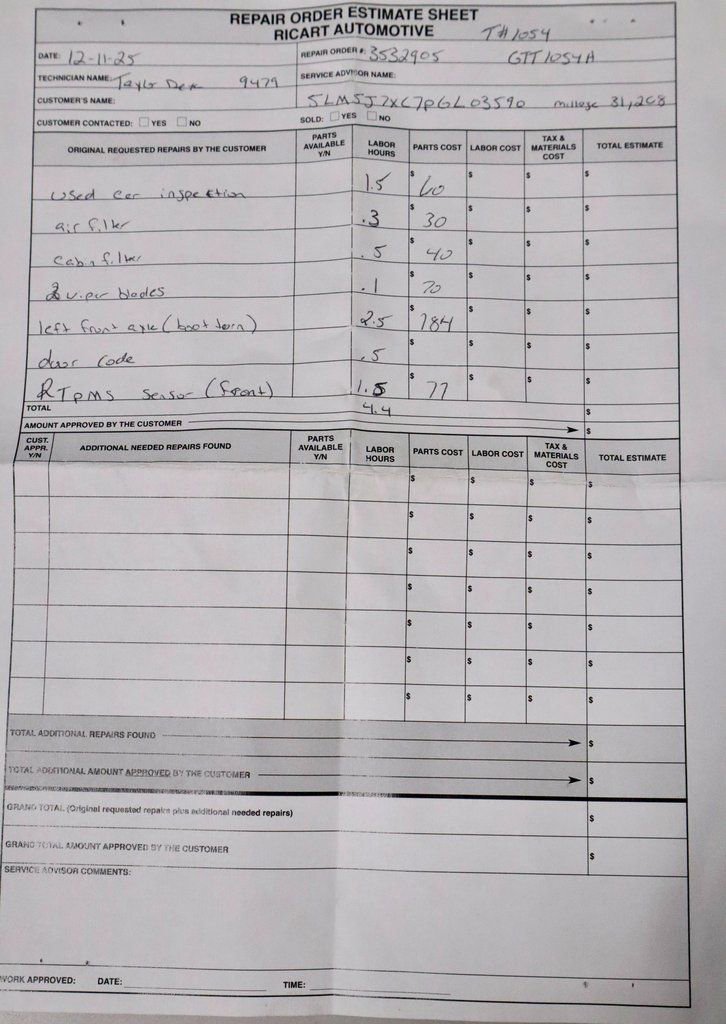 REPAIR ORDER ESTIMATE SHEET
RICART AUTOMOTIVE
T#1054
DATE: 12-11-25 REPAIR ORDER #: 3532905 GTT1054A
TECHNICIAN NAME: Taylor 9479 SERVICE ADVISOR NAME:
CUSTOMER'S NAME: 5LM5J7XC7PGL03590 millage 31,268
CUSTOMER CONTACTED: YES NO SOLD: YES NO
ORIGINAL REQUESTED REPAIRS BY THE CUSTOMER PARTS AVAILABLE Y/N LABOR HOURS PARTS COST LABOR COST TAX & MATERIALS COST TOTAL ESTIMATE
used car inspection 1.5 $ 60 $ $ $
air filter .3 $ 30 $ $ $
cabin filter .5 $ 40 $ $ $
2 wiper blades .1 $ 70 $ $ $
left front axle (boot torn) 2.5 $ 784 $ $ $
door code .5 $ $ $ $
R TPMS Sensor (front) 1.5 $ 77 $ $ $
TOTAL 4.4 $
AMOUNT APPROVED BY THE CUSTOMER $
CUST. APPR. Y/N ADDITIONAL NEEDED REPAIRS FOUND PARTS AVAILABLE Y/N LABOR HOURS PARTS COST LABOR COST TAX & MATERIALS COST TOTAL ESTIMATE
$ $ $ $
$ $ $ $
$ $ $ $
$ $ $ $
$ $ $ $
$ $ $ $
$ $ $ $
TOTAL ADDITIONAL REPAIRS FOUND $
TOTAL ADDITIONAL AMOUNT APPROVED BY THE CUSTOMER $
GRAND TOTAL (Original requested repairs plus additional needed repairs) $
GRAND TOTAL AMOUNT APPROVED BY THE CUSTOMER $
SERVICE ADVISOR COMMENTS:
WORK APPROVED: DATE: TIME: